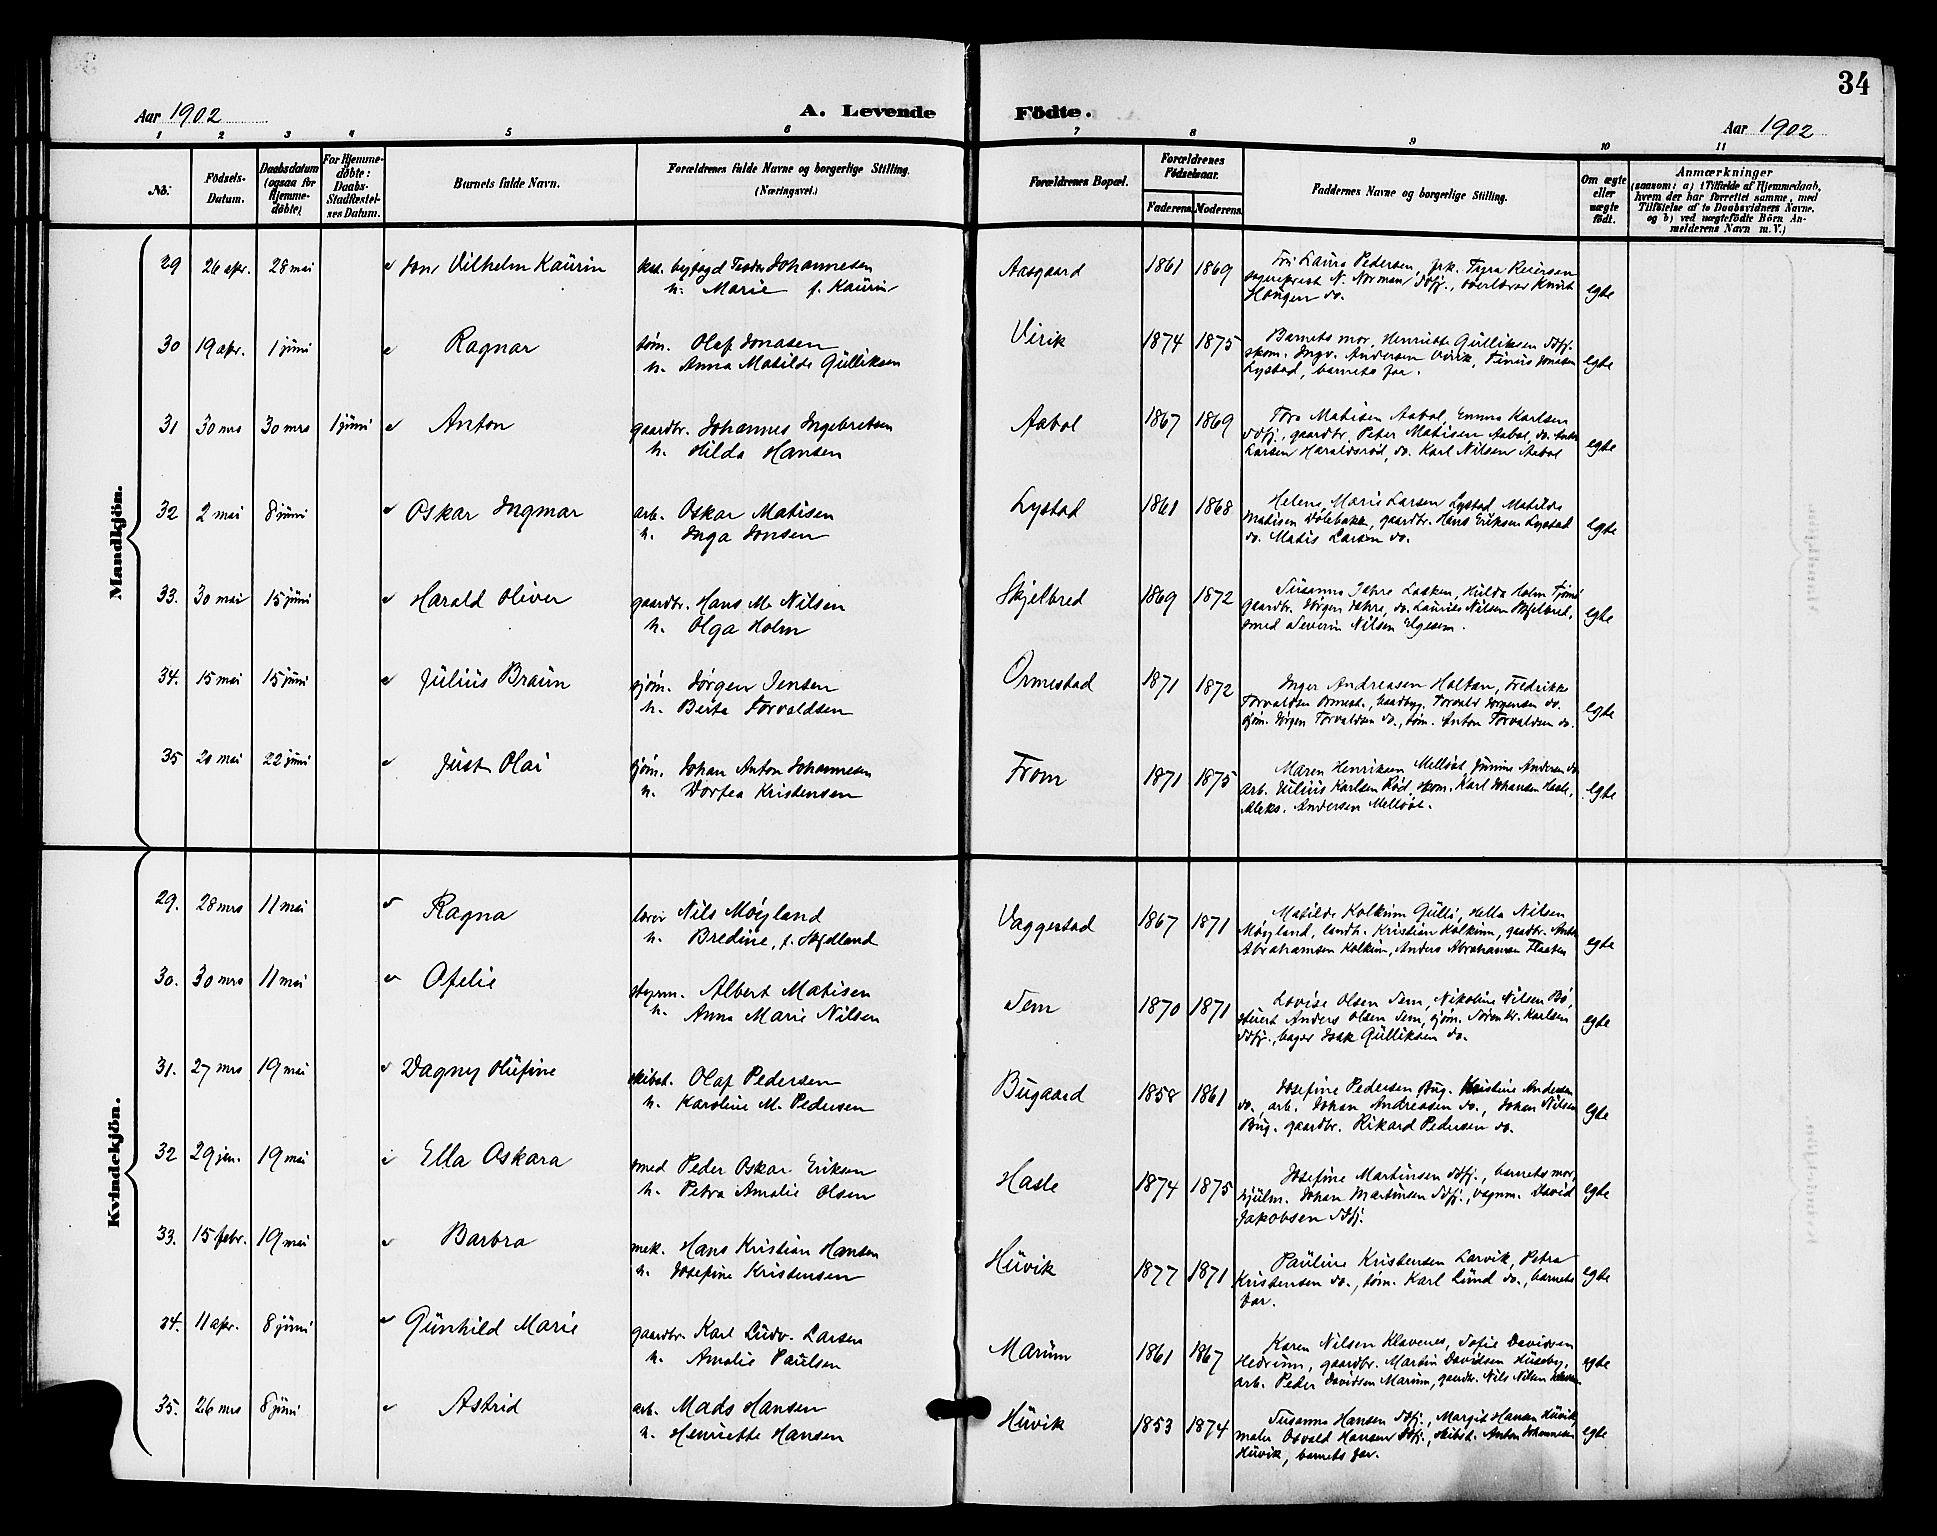 34
Aar 1902
A. Levende
Födte.
Aar 1902
1 2 3 4 5 6 7 8 9 10 11
No.
Födsels-
Datum.
Daabsdatum
(ogsaa for
Hjemme-
döbte)
For Hjemme-
döbte:
Daabs-
Stadfæstel-
ses Datum.
Barnets fulde Navn.
Forældrenes fulde Navne og borgerlige Stilling.
(Næringsvei.)
Forældrenes Bopæl.
Forældrenes
Födselsaar.
Faderens.
Moderens.
Faddernes Navne og borgerlige Stilling.
Om ægte
eller
uægte
født.
Anmærkninger
(saasom: a) i Tilfælde af Hjemmedaab,
hvem der har forrettet samme, med
Tilföielse af to Daabsvidners Navne,
og b) ved uægtefödte Börn An-
melderens Navn m. V.)
Mandkjön.
29 26 apr. 28 mai Jon Vilhelm Kaurin
kst. byfogd Teodor Johannesen
h. Marie f. Kaurin
Aasgaard 1861 1869
Fru Laura Pedersen, frk. Tyra Reiersen
sogneprest N. Norman Sdfj., overlærer Knut
Haugen do.
egte
30 19 apr. 1 juni Ragnar
tøm. Olaf Jonasen
h. Anna Matilde Gulliksen
Virik 1874 1875
Barnets mor, Henriette Gulliksen Sdfj.
skom. Ingv. Andersen Virik, Tinius Jonasen
Lystad, barnets far.
egte
31 30 mrs 30 mrs 1 juni Anton
gaardbr. Johannes Ingebretsen
h. Hilda Hansen
Aabol 1867 1869
Tora Matisen Aabol, Emma Karlsen
Sdfj., gaardbr. Peter Matisen Aabol, do. Anton
Larsen Haraldsrød, do. Karl Nilsen Aabol
egte
32 2 mai 8 juni Oskar Ingmar
arb. Oskar Matisen
h. Inga Jonsen
Lystad 1861 1868
Helene Marie Larsen Lystad, Matilde
Matisen Dølebakk, gaardbr. Hans Eriksen Lystad
do. Matis Larsen do.
egte
33. 30 mai 15 juni Harald Oliver
gaardbr. Hans M. Nilsen
h. Olga Holm
Skjelbred 1869 1872
Susanne Jahre Lasken, Hulda Holm Tjømø
gaardbr. Jørgen Jahre, do. Laurits Nilsen Skjelbred,
smed Severin Nilsen Elgesem.
egte
34. 15 mai 15 juni Julius Braün
sjøm. Jørgen Jensen
h. Berta Torvaldsen
Ormestad 1871 1872
Inger Andreasen Haltan, Fredrikke
Torvaldsen Ormest., baadbyg. Torvald Jørgensen do.
sjøm. Jørgen Torvaldsen do., tøm. Anton Torvaldsen do.
egte
35 20 mai 22 juni Just Olai
sjøm. Johan Anton Johannesen
h. Dortea Kristensen
From 1871 1875
Maren Henriksen Melløst, Junine Andersen do.
arb. Julius Karlsen Rød, skom. Karl Johansen Hasle,
Aleks. Andersen Melløst.
egte
Kvindekjön.
29. 28 mrs 11 mai Ragna
lærer Nils Møyland
h. Bredine, f. Skjelland
Vaggestad 1867 1871
Matilde Kolkinn Gulli, Hella Nilsen
Møyland, landh. Kristian Kolkinn, gaardbr. Anton
Abrahamsen Kolkinn, Anders Abrahamsen Flaaten
egte
30. 30 mrs 11 mai Ofelie
styrm. Albert Matisen
h. Anna Marie Nilsen
Sem 1870 1871
Lovise Olsen Sem, Nikoline Nilsen Bø,
stuert Anders Olsen Sem, sjøm. Søren Kr. Karlsen
Sdfj., bager Isak Gulliksen do.
egte
31. 27 mrs 19 mai Dagny Olufine
skibst. Olaf Pedersen
h. Karoline M. Pedersen
Bugaard 1858 1861
Josefine Pedersen Bug. Kristine Andersen
do., arb. Johan Andreasen do., Johan Nilsen
Bug. gaardbr. Rikard Pedersen do.
egte
32 29 jan. 19 mai Ella Oskara
smed Peder Oskar Eriksen
h. Petra Amalie Olsen
Hasle 1874 1875
Josefine Martinsen Sdfj., barnets mor,
hjulm. Johan Martinsen Sdfj., vognm. David
Jakobsen Sdfj.
egte
33. 15 febr. 19 mai Barbra
mek. Hans Kristian Hansen
h. Josefine Kristensen
Huvik 1877 1871
Pauline Kristensen Larvik, Petra
Kristensen do., tøm. Karl Lund do., barnets
far.
egte
34. 11 apr. 8 juni Gunhild Marie
gaardbr. Karl Ludv. Larsen
h. Amalie Paulsen
Marum 1861 1867
Karen Nilsen Klavenes, Sofie Davidsen
Hedrum, gaardbr. Martin Davidsen Huseby,
arb. Peder Davidsen Marum, gaardbr. Nils Nilsen
egte
35. 26 mrs 8 juni Astrid
arb. Mads Hansen
h. Henriette Hansen
Huvik 1853 1874
Susanne Hansen Sdfj., Margit Hansen Huvik,
maler Osvald Hansen Sdfj., skibst. Anton Johannesen
Huvik, barnets far.
egte